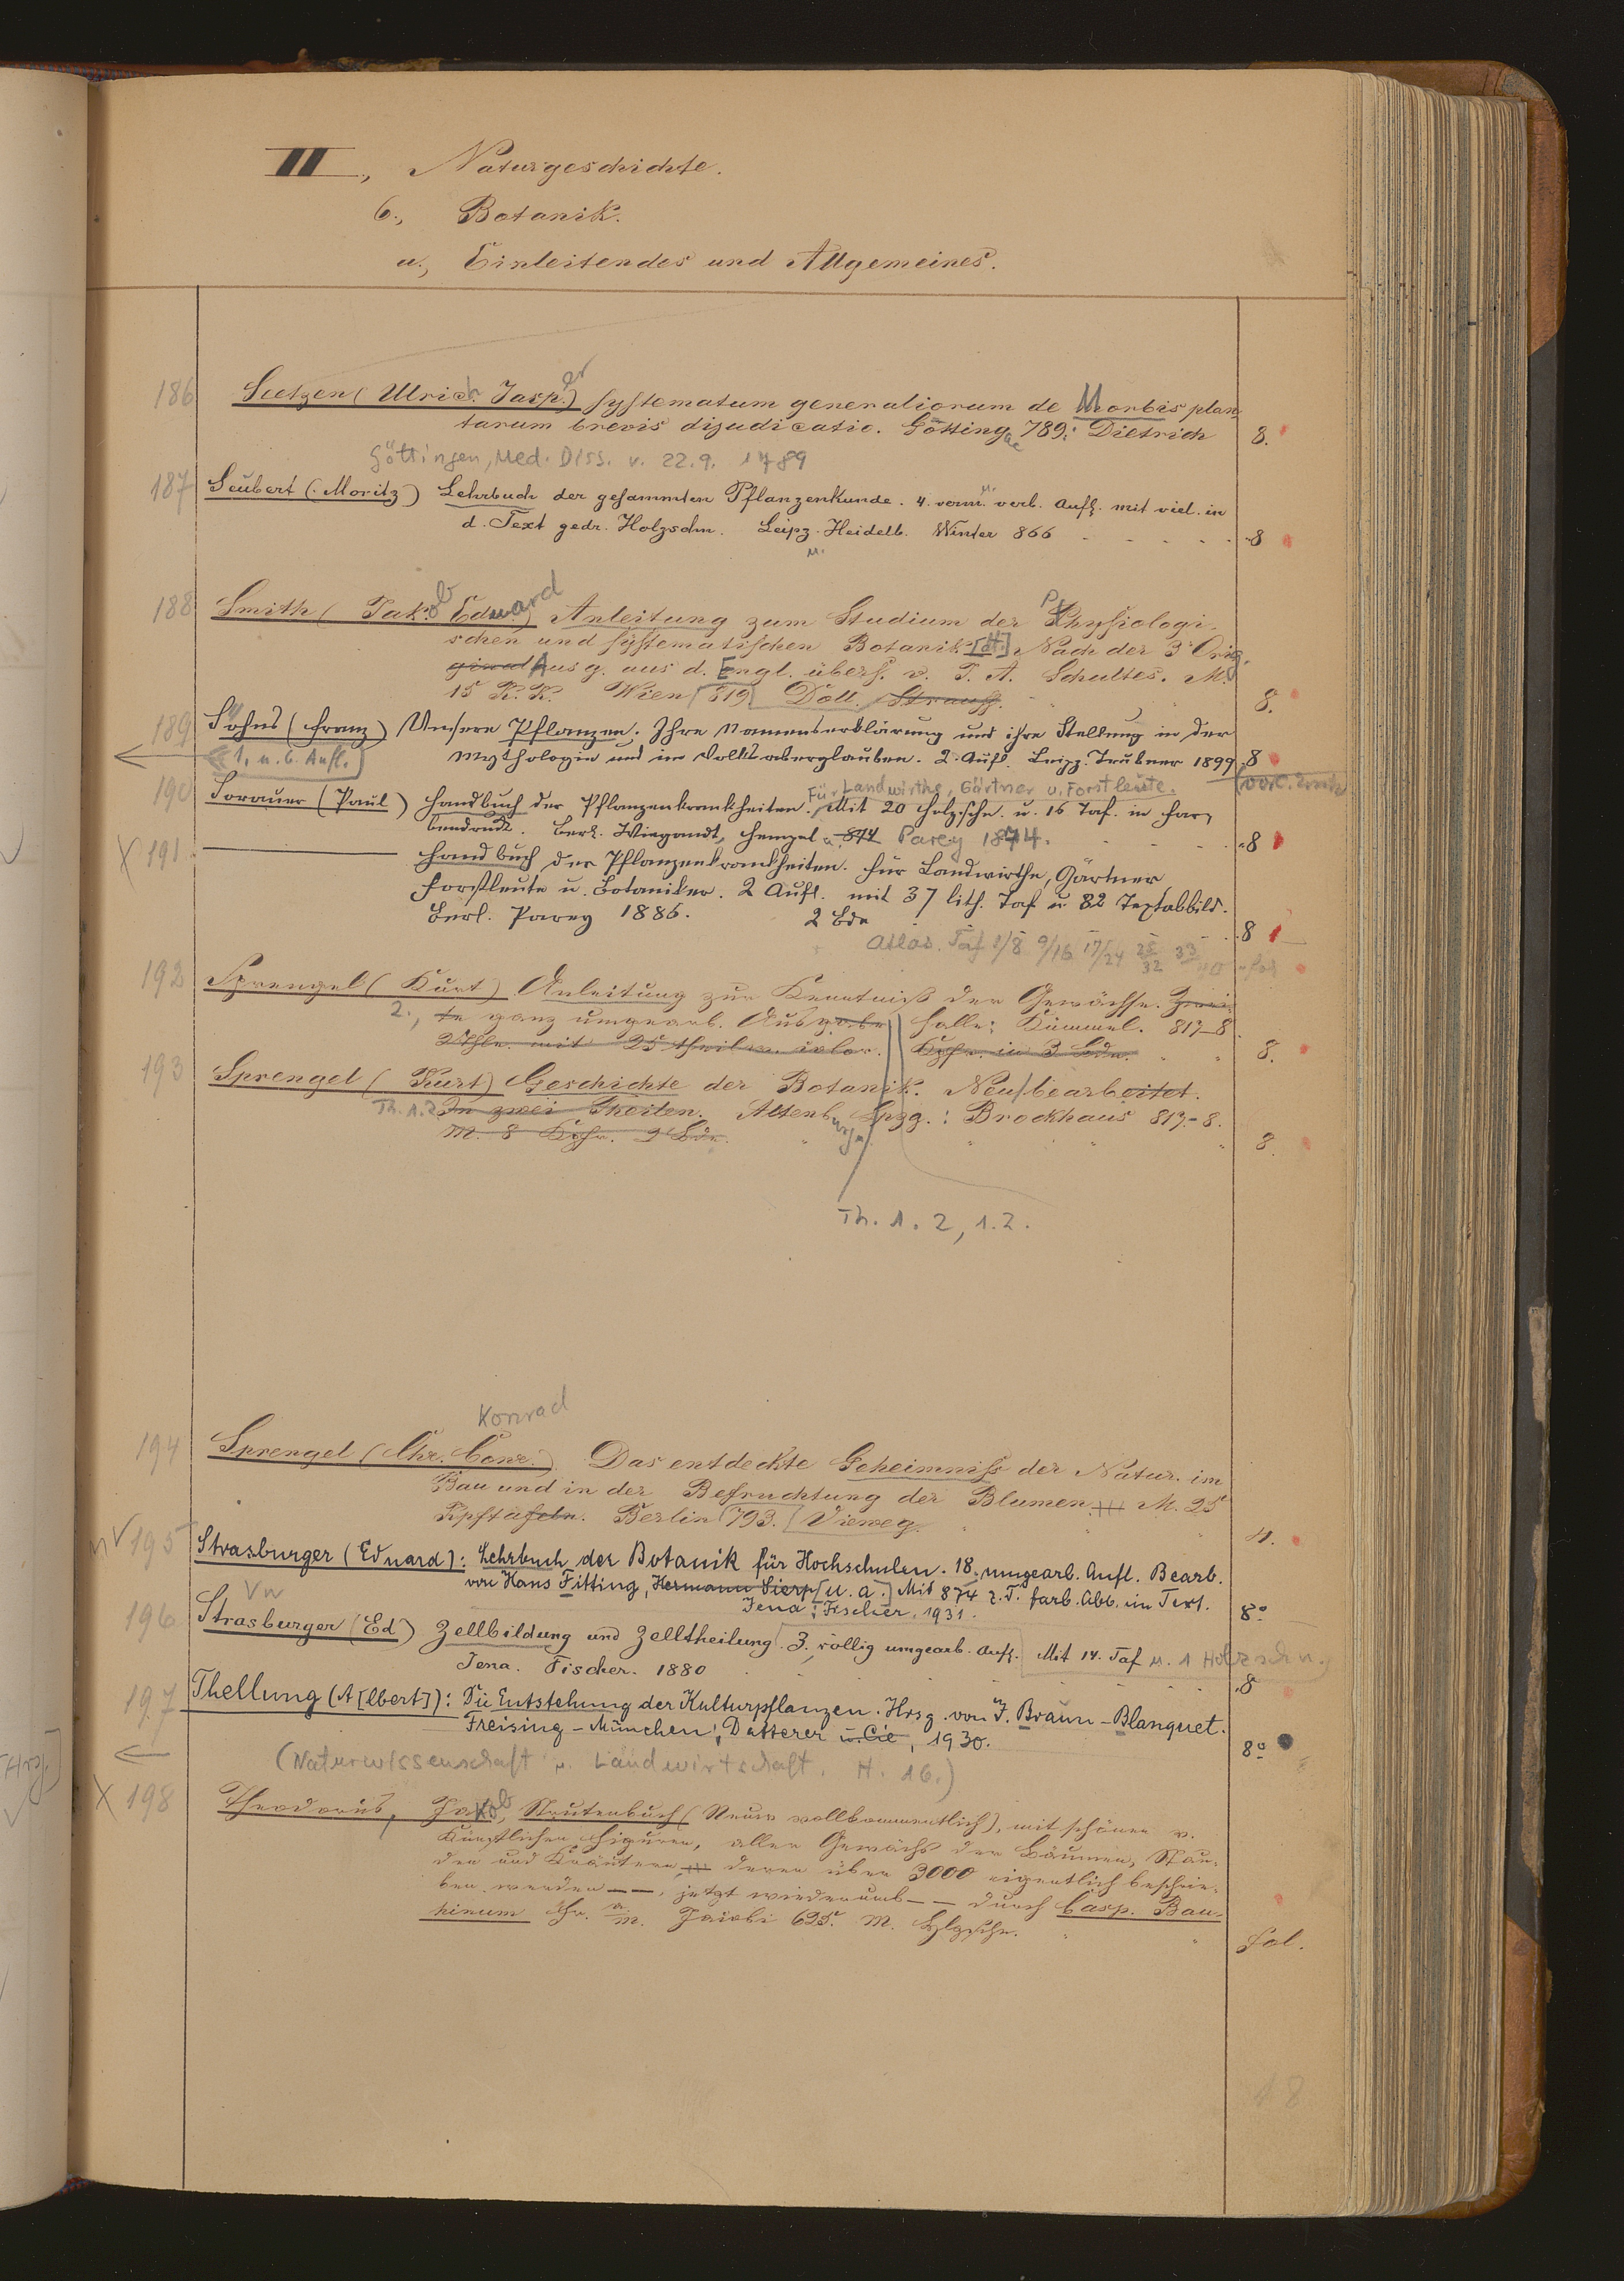 II., Naturgeschichte.
6., Botanik.
a., Einleitendes und Allgemeines.
186 Seetzen (Ulrich Jasper) systematum generaliorum de Morbis plan-
tarum brevis dijudicatio. Göttingae 789: Dietrich 8.
Göttingen, Med. Diss. v. 22.9. 1789
187 Seubert (Moritz) Lehrbuch der gesammten Pflanzenkunde. 4. verm. u. verb. Aufl. mit viel. in
d. Text gedr. Holzschn. Leipz. u. Heidelb. Winter 866 8
188 Smith (Jakob Edward) Anleitung zum Studium der Physiologi-
schen und systematischen Botanik [dt.] Nach der 3. Orig.
ginal Ausg. aus d. Engl. übers. v. J. A. Schultes. M.
15 K. K. Wien 819 Doll. Strauss. 8.
189 Söhns (Franz) Unsere Pflanzen. Ihre Namenserklärung und ihre Stellung in der
Mythologie und im Volksaberglauben. 2. Aufl. Leipz. Teubner 1899 8
1. u. 6. Aufl.
190 Sorauer (Paul) Handbuch der Pflanzenkrankheiten. Für Landwirthe, Gärtner u. Forstleute. Mit 20 Holzschn. u. 16 Taf. in Far-
bendruck. Berl. Wiegandt, Hempel u. 874 Parey 1874. 8
X 191 Handbuch der Pflanzenkrankheiten. Für Landwirthe, Gärtner
Forstleute u. Botaniker. 2 Aufl. mit 37 lith. Taf u 82 Textabbild.
Berl. Parey 1886. 2 Bde 8
Atlas. Taf 1/8 9/16 17/24 25/32 33 fol
192 Sprengel (Kurt) Anleitung zur Kenntniß der Gewächse. Zwei-
2., te ganz umgearb. Ausgabe Halle: Kümmel. 817-8.
2 Thle. mit 25 theilw. color. Kpfr. in 3 Bde. 8.
193 Sprengel (Kurt) Geschichte der Botanik. Neu bearbeitet.
Th. 1.2 In zwei Theilen. Altenburg Lpzg.: Brockhaus 817-8.
M. 8 Kpfr. 2 Bde. 8.
Th. 1. 2, 1.2.
Konrad
194 Sprengel (Chr. Conr.) Das entdeckte Geheimniss der Natur im
Bau und in der Befruchtung der Blumen M. 25
Kpftafeln. Berlin 793. Vieweg. 4.
195 Strasburger (Eduard): Lehrbuch der Botanik für Hochschulen. 18. umgearb. Aufl. Bearb.
von Hans Fitting, Hermann Sierp [u. a.] Mit 874 z. T. farb. Abb. im Text.
Jena: Fischer, 1931. 8°
196 Strasburger (Ed) Zellbildung und Zelltheilung. 3. völlig umgearb. Aufl. Mit 14. Taf u. 1 Holzschn.
Jena. Fischer. 1880 8
197 Thellung (A[lbert]): Die Entstehung der Kulturpflanzen. Hrsg. von J. Braun-Blanquet.
Freising-München, Datterer u. Cie, 1930. 8°
(Naturwissenschaft u. Landwirtschaft. H. 16.)
X 198 Theodorus, Jakob, Kreutenbuch (Neuw vollkommentlich), mit schönen v.
künstlichen Figuren, aller Gewächs der Bäumen, Stau-
den und Kräutern deren über 3000 eigentlich beschrie-
ben werden — —, jetzt wiederumb — — durch Casp. Bau-
hinum Fr. a. M. Jacobi 625. M. Hlzschn. Fol.
18